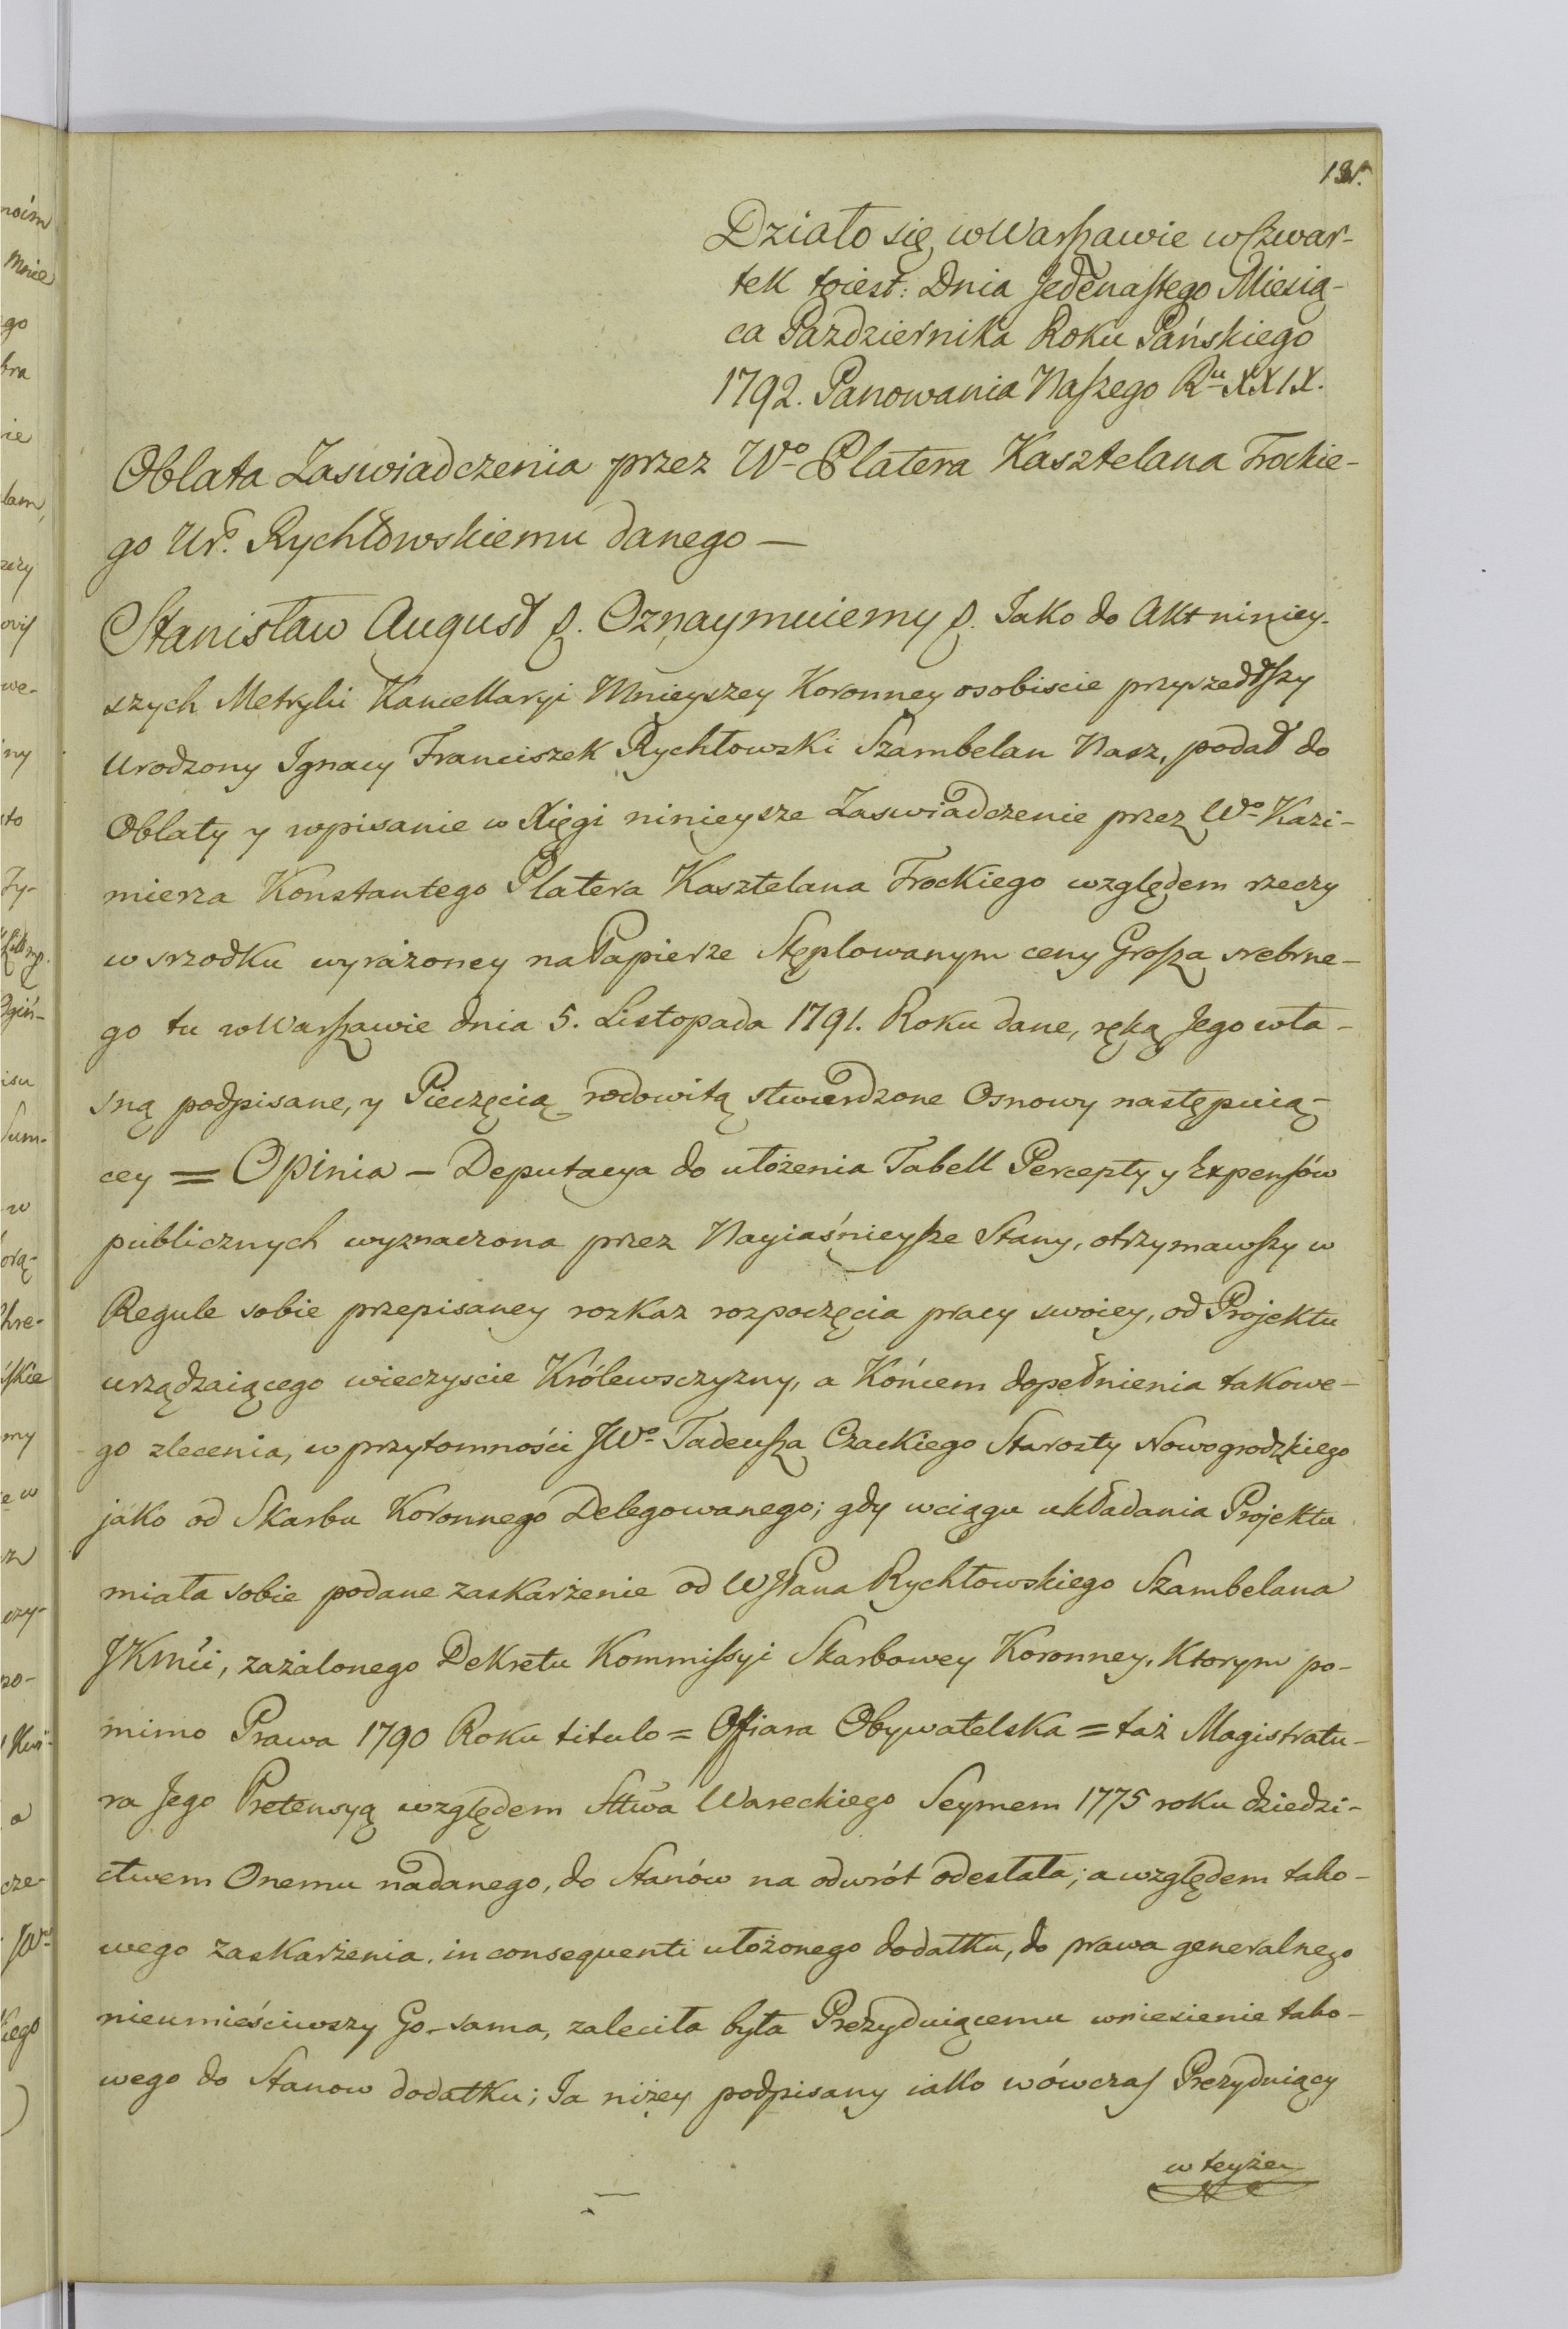 131.
Działo się w Warszawie w Czwar-
tek to iest: Dnia Jedenastego Miesią-
ca Pazdziernika Roku Pańskiego
1792. Panowania Naszego Ru XXIX.
Oblata Zaswiadczenia przez Wo Platera Kasztelana Trockie-
go Ur. Rychłowskiemu danego —
Stanisław August p. Oznaymuiemy p. Jako do Akt niniey-
szych Metryki Kancellaryi Mnieyszey Koronney osobiscie przyszedłszy
Urodzony Ignacy Franciszek Rychłowski Szambelan Nasz, podał do
Oblaty y wpisanie w Xięgi ninieysze Zaswiadczenie przez Wo Kazi-
mierza Konstantego Platera Kasztelana Trockiego względem rzeczy
w srzodku wyrażoney na Papierze Stęplowanym ceny Grosza srebrne-
go tu w Warszawie dnia 5. Listopada 1791. Roku dane, ręką Jego wła-
sną podpisane, y Pieczęcią rodowitą stwierdzone Osnowy następuią-
cey = Opinia — Deputacya do ułożenia Tabell Percepty y Expensów
publicznych wyznaczona przez Nayiaśnieysze Stany, otrzymawszy w
Regule sobie przepisaney rozkaz rozpoczęcia pracy swoiey, od Projektu
urządzaiącego wieczyscie Królewszczyzny, a Końcem dopełnienia takowe-
go zlecenia, w przytomności JWo Tadeusza Czackiego Starosty Nowogrodzkiego
jako od Skarbu Koronnego Delegowanego; gdy wciągu układania Projektu
miała sobie podane zaskarżenie od WJPana Rychłowskiego Szambelana
JKMci, zażalonego Dekretu Kommissyi Skarbowey Koronney, Ktorym po-
mimo Prawa 1790 Roku titulo = Ofiara Obywatelska = taż Magistratu-
ra Jego Pretensyą względem Sttwa Wareckiego Seymem 1775 roku dziedzi-
ctwem Onemu nadanego, do Stanów na odwrót odesłała; a względem tako-
wego zaskarżenia, in consequenti ułożonego dodatku, do prawa generalnego
nieumieściwszy Go-sama, zaleciła była Prezyduiącemu wniesienie tako-
wego do Stanow dodatku; Ja niżey podpisany iako wówczas Prezyduiący
w teyże